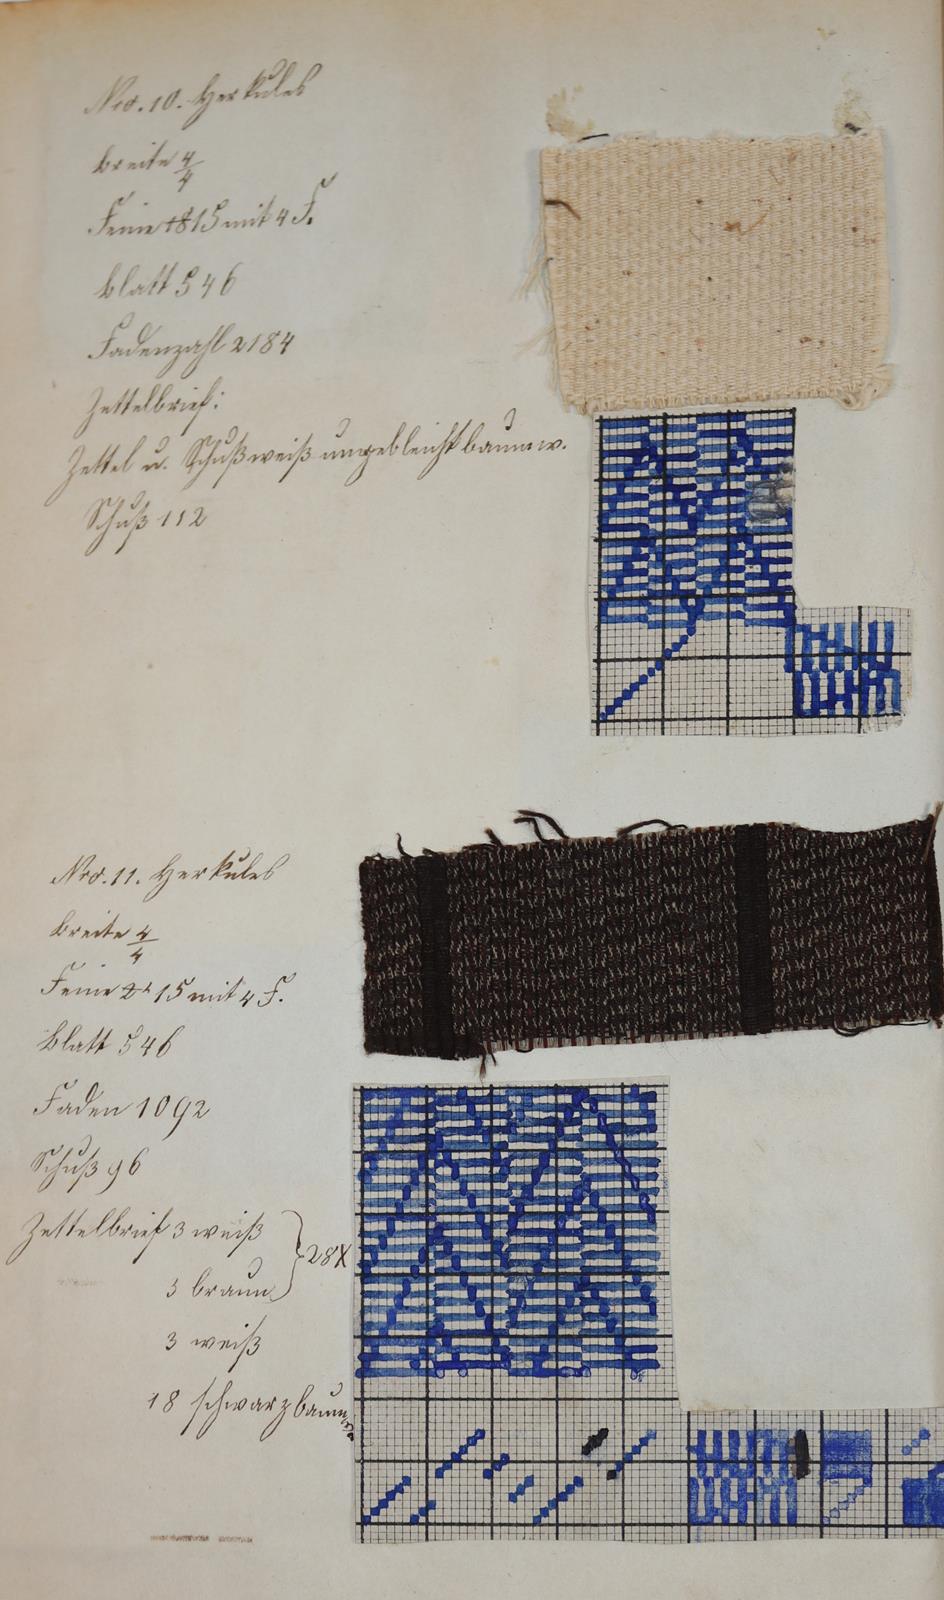 Nro. 10. Herkules
breite 4/4
Feine 15 mit 4 F.
blatt 546
Fadenzahl 2184
Zettelbrief:
Zettel u. Schuß weiß ungebleicht baumw.
Schuß 112
Nro. 11. Herkules
breite 4/4
Feine 15 mit 4 F.
blatt 546
Faden 1092
Schuß 96
Zettelbrief 3 weiß
3 braun } 28X
3 weiß
18 schwarz baumw.